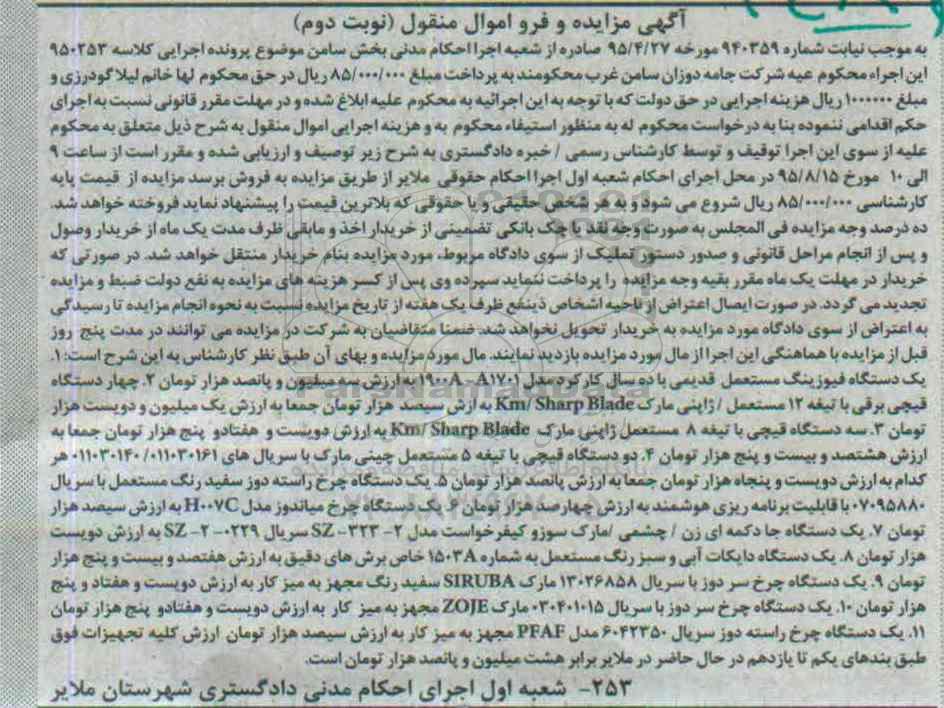 آگهی مزایده و فرو اموال منقول (نوبت دوم)
به موجب نیابت شماره ۹۴۰۳۵۹ مورخه ۹۵/۴/۲۷ صادره از شعبه اجرا احکام مدنی بخش سامن موضوع پرونده اجرایی کلاسه ۹۵۰۲۵۳
این اجراء محکوم عیه شرکت جامه دوزان سامن غرب محکومند به پرداخت مبلغ ۸۵/۰۰۰/۰۰۰ ریال در حق محکوم لها خانم لیلا گودرزی و
مبلغ ۱۰۰۰۰۰۰ ریال هزینه اجرایی در حق دولت که با توجه به این اجرائیه به محکوم علیه ابلاغ شده و در مهلت مقرر قانونی نسبت به اجرای
حکم اقدامی ننموده بنا به درخواست محکوم له به منظور استیفاء محکوم به و هزینه اجرایی اموال منقول به شرح ذیل متعلق به محکوم
علیه از سوی این اجرا توقیف و توسط کارشناس رسمی / خبره دادگستری به شرح زیر توصیف و ارزیابی شده و مقرر است از ساعت ۹
الی ۱۰ مورخ ۹۵/۸/۱۵ در محل اجرای احکام شعبه اول اجرا احکام حقوقی ملایر از طریق مزایده به فروش برسد مزایده از قیمت پایه
کارشناسی ۸۵/۰۰۰/۰۰۰ ریال شروع می شود و به هر شخص حقیقی و یا حقوقی که بلاترین قیمت را پیشنهاد نماید فروخته خواهد شد.
ده درصد وجه مزایده فی المجلس به صورت وجه نقد یا چک بانکی تضمینی از خریدار اخذ و مابقی ظرف مدت یک ماه از خریدار وصول
و پس از انجام مراحل قانونی و صدور دستور تملیک از سوی دادگاه مربوط، مورد مزایده بنام خریدار منتقل خواهد شد. در صورتی که
خریدار در مهلت یک ماه مقرر بقیه وجه مزایده را پرداخت ننماید سپرده وی پس از کسر هزینه های مزایده به نفع دولت ضبط و مزایده
تجدید می گردد. در صورت ایصال اعتراض از ناحیه اشخاص ذینفع ظرف یک هفته از تاریخ مزایده نسبت به نحوه انجام مزایده تا رسیدگی
به اعتراض از سوی دادگاه مورد مزایده به خریدار تحویل نخواهد شد. ضمنا متقاضیان به شرکت در مزایده می توانند در مدت پنج روز
قبل از مزایده با هماهنگی این اجرا از مال مورد مزایده بازدید نمایند. مال مورد مزایده و بهای آن طبق نظر کارشناس به این شرح است: ۱.
یک دستگاه فیوزینگ مستعمل قدیمی با ده سال کارکرد مدل A۱۷۰۱ - ۱۹۰۰A به ارزش سه میلیون و پانصد هزار تومان ۲. چهار دستگاه
قیچی برقی با تیغه ۱۲ مستعمل / ژاپنی مارک Km/ Sharp Blade به ارزش سیصد هزار تومان جمعا به ارزش یک میلیون و دویست هزار
تومان ۳. سه دستگاه قیچی با تیغه ۸ مستعمل ژاپنی مارک Km/ Sharp Blade به ارزش دویست و هفتادو پنج هزار تومان جمعا به
ارزش هشتصد و بیست و پنج هزار تومان ۴. دو دستگاه قیچی با تیغه ۵ مستعمل چینی مارک با سریال های ۰۱۱۰۳۰۱۶۱/ ۰۱۱۰۳۰۱۴۰ هر
کدام به ارزش دویست و پنجاه هزار تومان جمعا به ارزش پانصد هزار تومان ۵. یک دستگاه چرخ راسته دوز سفید رنگ مستعمل با سریال
۰۷۰۹۵۸۸۰ با قابلیت برنامه ریزی هوشمند به ارزش چهارصد هزار تومان ۶. یک دستگاه چرخ میاندوز مدل H۰۰۷C به ارزش سیصد هزار
تومان ۷. یک دستگاه جا دکمه ای زن / چشمی /مارک سوزو کیفرخواست مدل SZ -۲۲۳ -۲ سریال SZ -۲ -۰۲۲۹ به ارزش دویست
هزار تومان ۸. یک دستگاه دایکات آبی و سبز رنگ مستعمل به شماره ۱۵۰۳A خاص برش های دقیق به ارزش هفتصد و بیست و پنج هزار
تومان ۹. یک دستگاه چرخ سر دوز با سریال ۱۳۰۲۶۸۵۸ مارک SIRUBA سفید رنگ مجهز به میز کار به ارزش دویست و هفتاد و پنج
هزار تومان ۱۰. یک دستگاه چرخ سر دوز با سریال ۰۳۰۴۰۱۰۱۵ مارک ZOJE مجهز به میز کار به ارزش دویست و هفتادو پنج هزار تومان
۱۱. یک دستگاه چرخ راسته دوز سریال ۶۰۴۲۳۵۰ مدل PFAF مجهز به میز کار به ارزش سیصد هزار تومان ارزش کلیه تجهیزات فوق
طبق بندهای یکم تا یازدهم در حال حاضر در ملایر برابر هشت میلیون و پانصد هزار تومان است.
۲۵۳- شعبه اول اجرای احکام مدنی دادگستری شهرستان ملایر